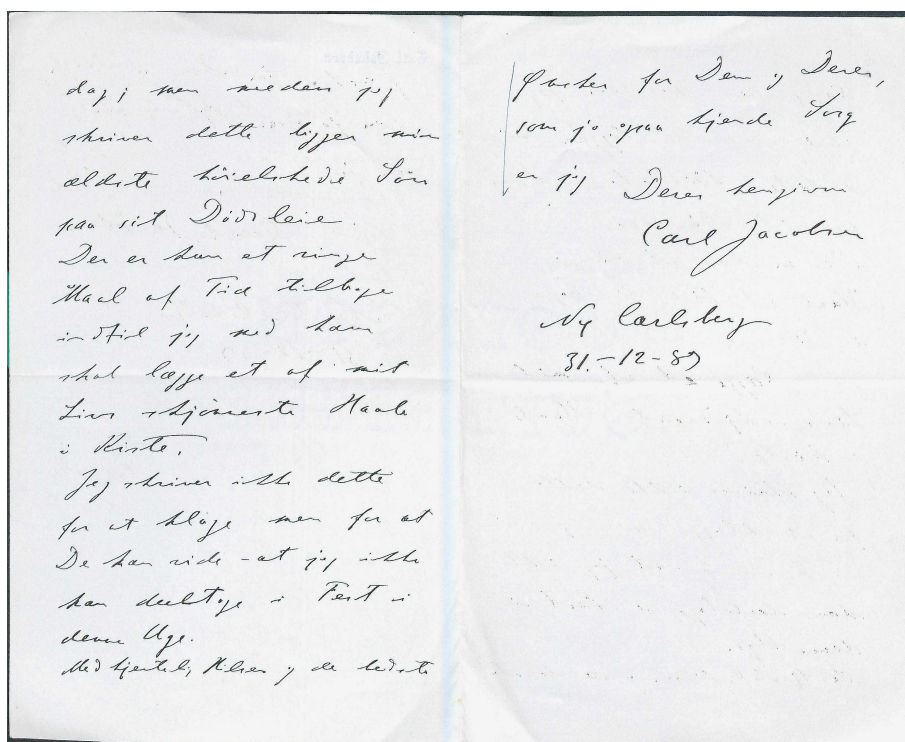 dag; men medens jeg
skriver dette ligger min
ældste høielskede Søn
paa sit Dødsleie.
Der er kun et ringe
Maal af Tid tilbage
indtil jeg med ham
skal lægge et af mit
Livs skjønneste Haab
i Kiste.
Jeg skriver ikke dette
for at klage men for at
De kan vide – at jeg ikke
kan deeltage i Fest i
denne Uge.
Med hjertelig Hilsen og de bedste
Ønsker for Dem og Deres,
som jo ogsaa kjende Sorg
er jeg Deres hengivne
Carl Jacobsen
Ny Carlsberg
31.-12-89